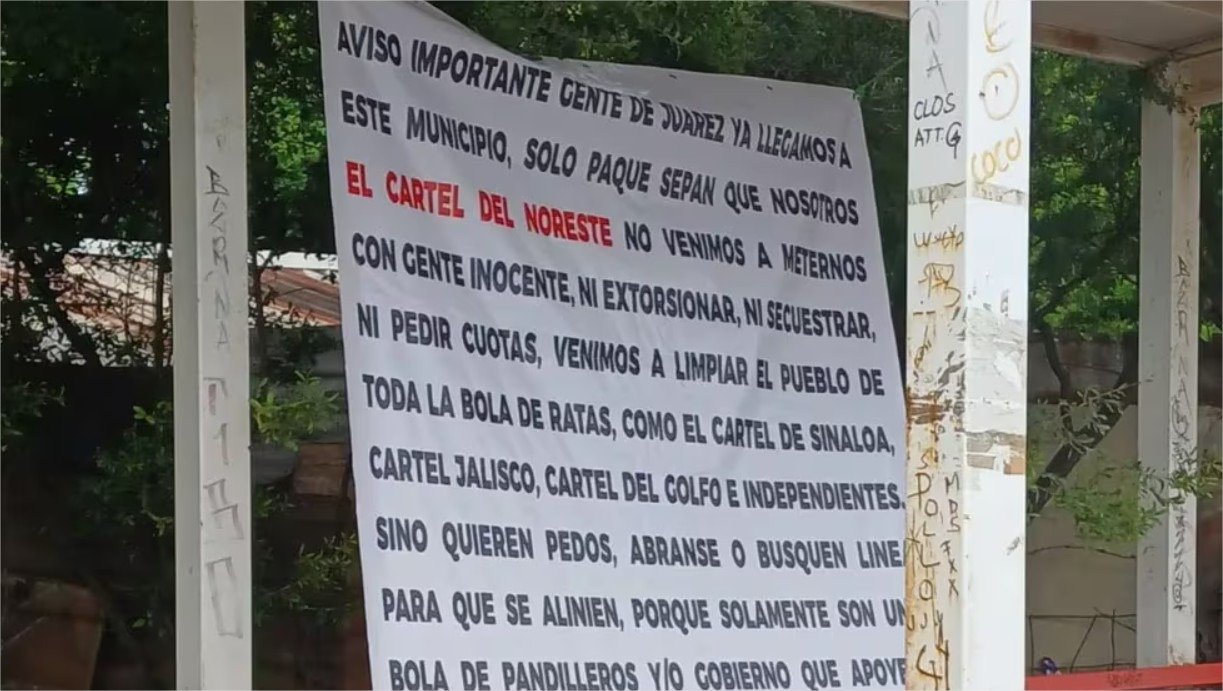 AVISO IMPORTANTE GENTE DE JUAREZ YA LLEGAMOS A
ESTE MUNICIPIO, SOLO PAQUE SEPAN QUE NOSOTROS
EL CARTEL DEL NORESTE NO VENIMOS A METERNOS
CON GENTE INOCENTE, NI EXTORSIONAR, NI SECUESTRAR,
NI PEDIR CUOTAS, VENIMOS A LIMPIAR EL PUEBLO DE
TODA LA BOLA DE RATAS, COMO EL CARTEL DE SINALOA,
CARTEL JALISCO, CARTEL DEL GOLFO E INDEPENDIENTES.
SINO QUIEREN PEDOS, ABRANSE O BUSQUEN LINE
PARA QUE SE ALINIEN, PORQUE SOLAMENTE SON UN
BOLA DE PANDILLEROS Y/O GOBIERNO QUE APOYE
CLOS
ATT:G
COCO